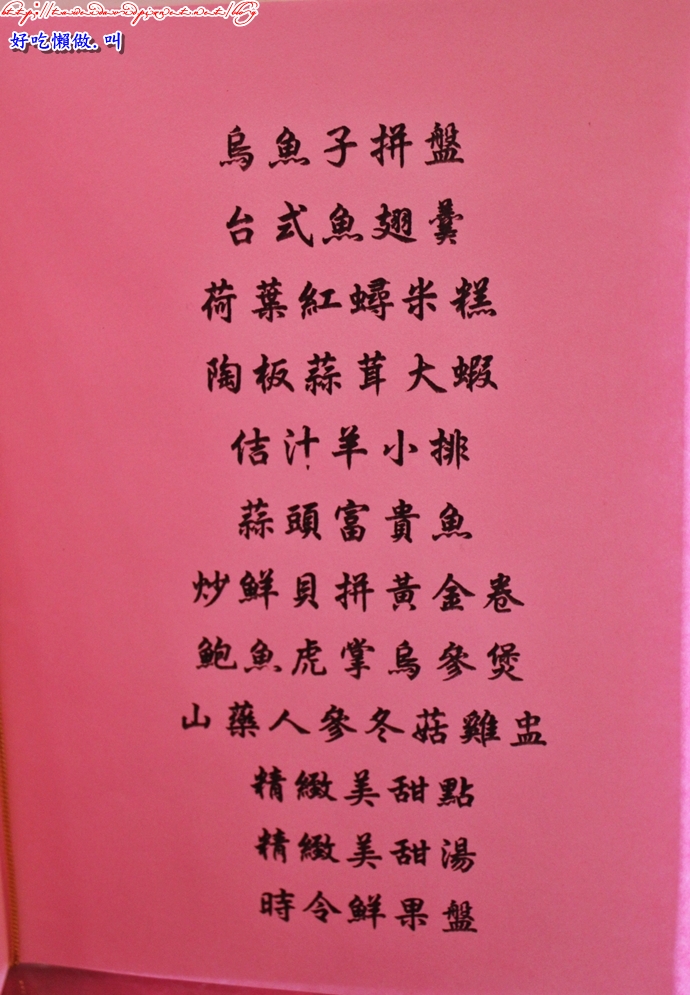 好吃懶做.叫
烏魚子拼盤
台式魚翅羹
荷葉紅蟳米糕
陶板蒜茸大蝦
佶汁羊小排
蒜頭富貴魚
炒鮮貝拼黃金卷
鮑魚虎掌烏參煲
山藥人參冬菇雞盅
精緻美甜點
精緻美甜湯
時令鮮果盤